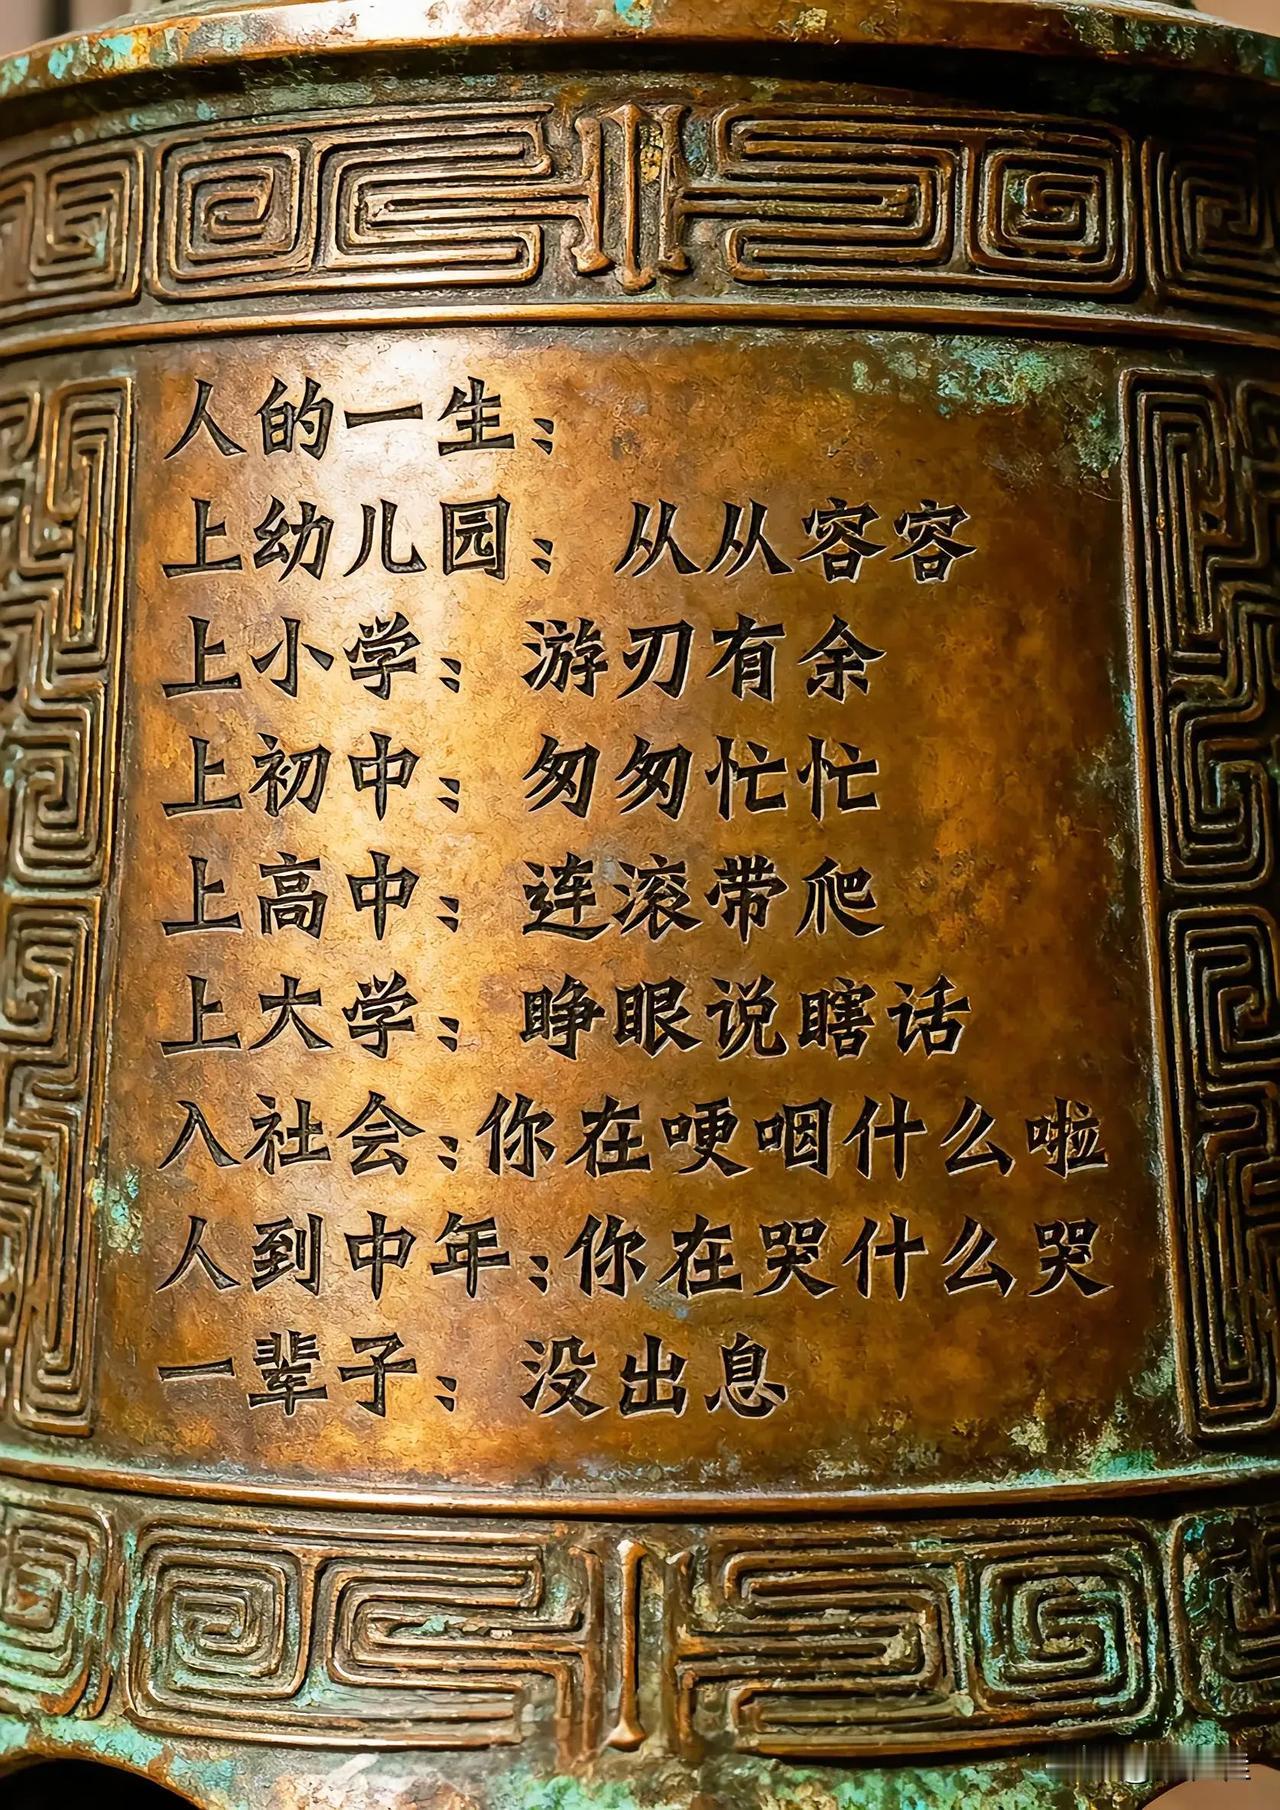 人的一生：
上幼儿园：从从容容
上小学：游刃有余
上初中：匆匆忙忙
上高中：连滚带爬
上大学：睁眼说瞎话
入社会：你在哽咽什么啦
人到中年：你在哭什么哭
一辈子：没出息